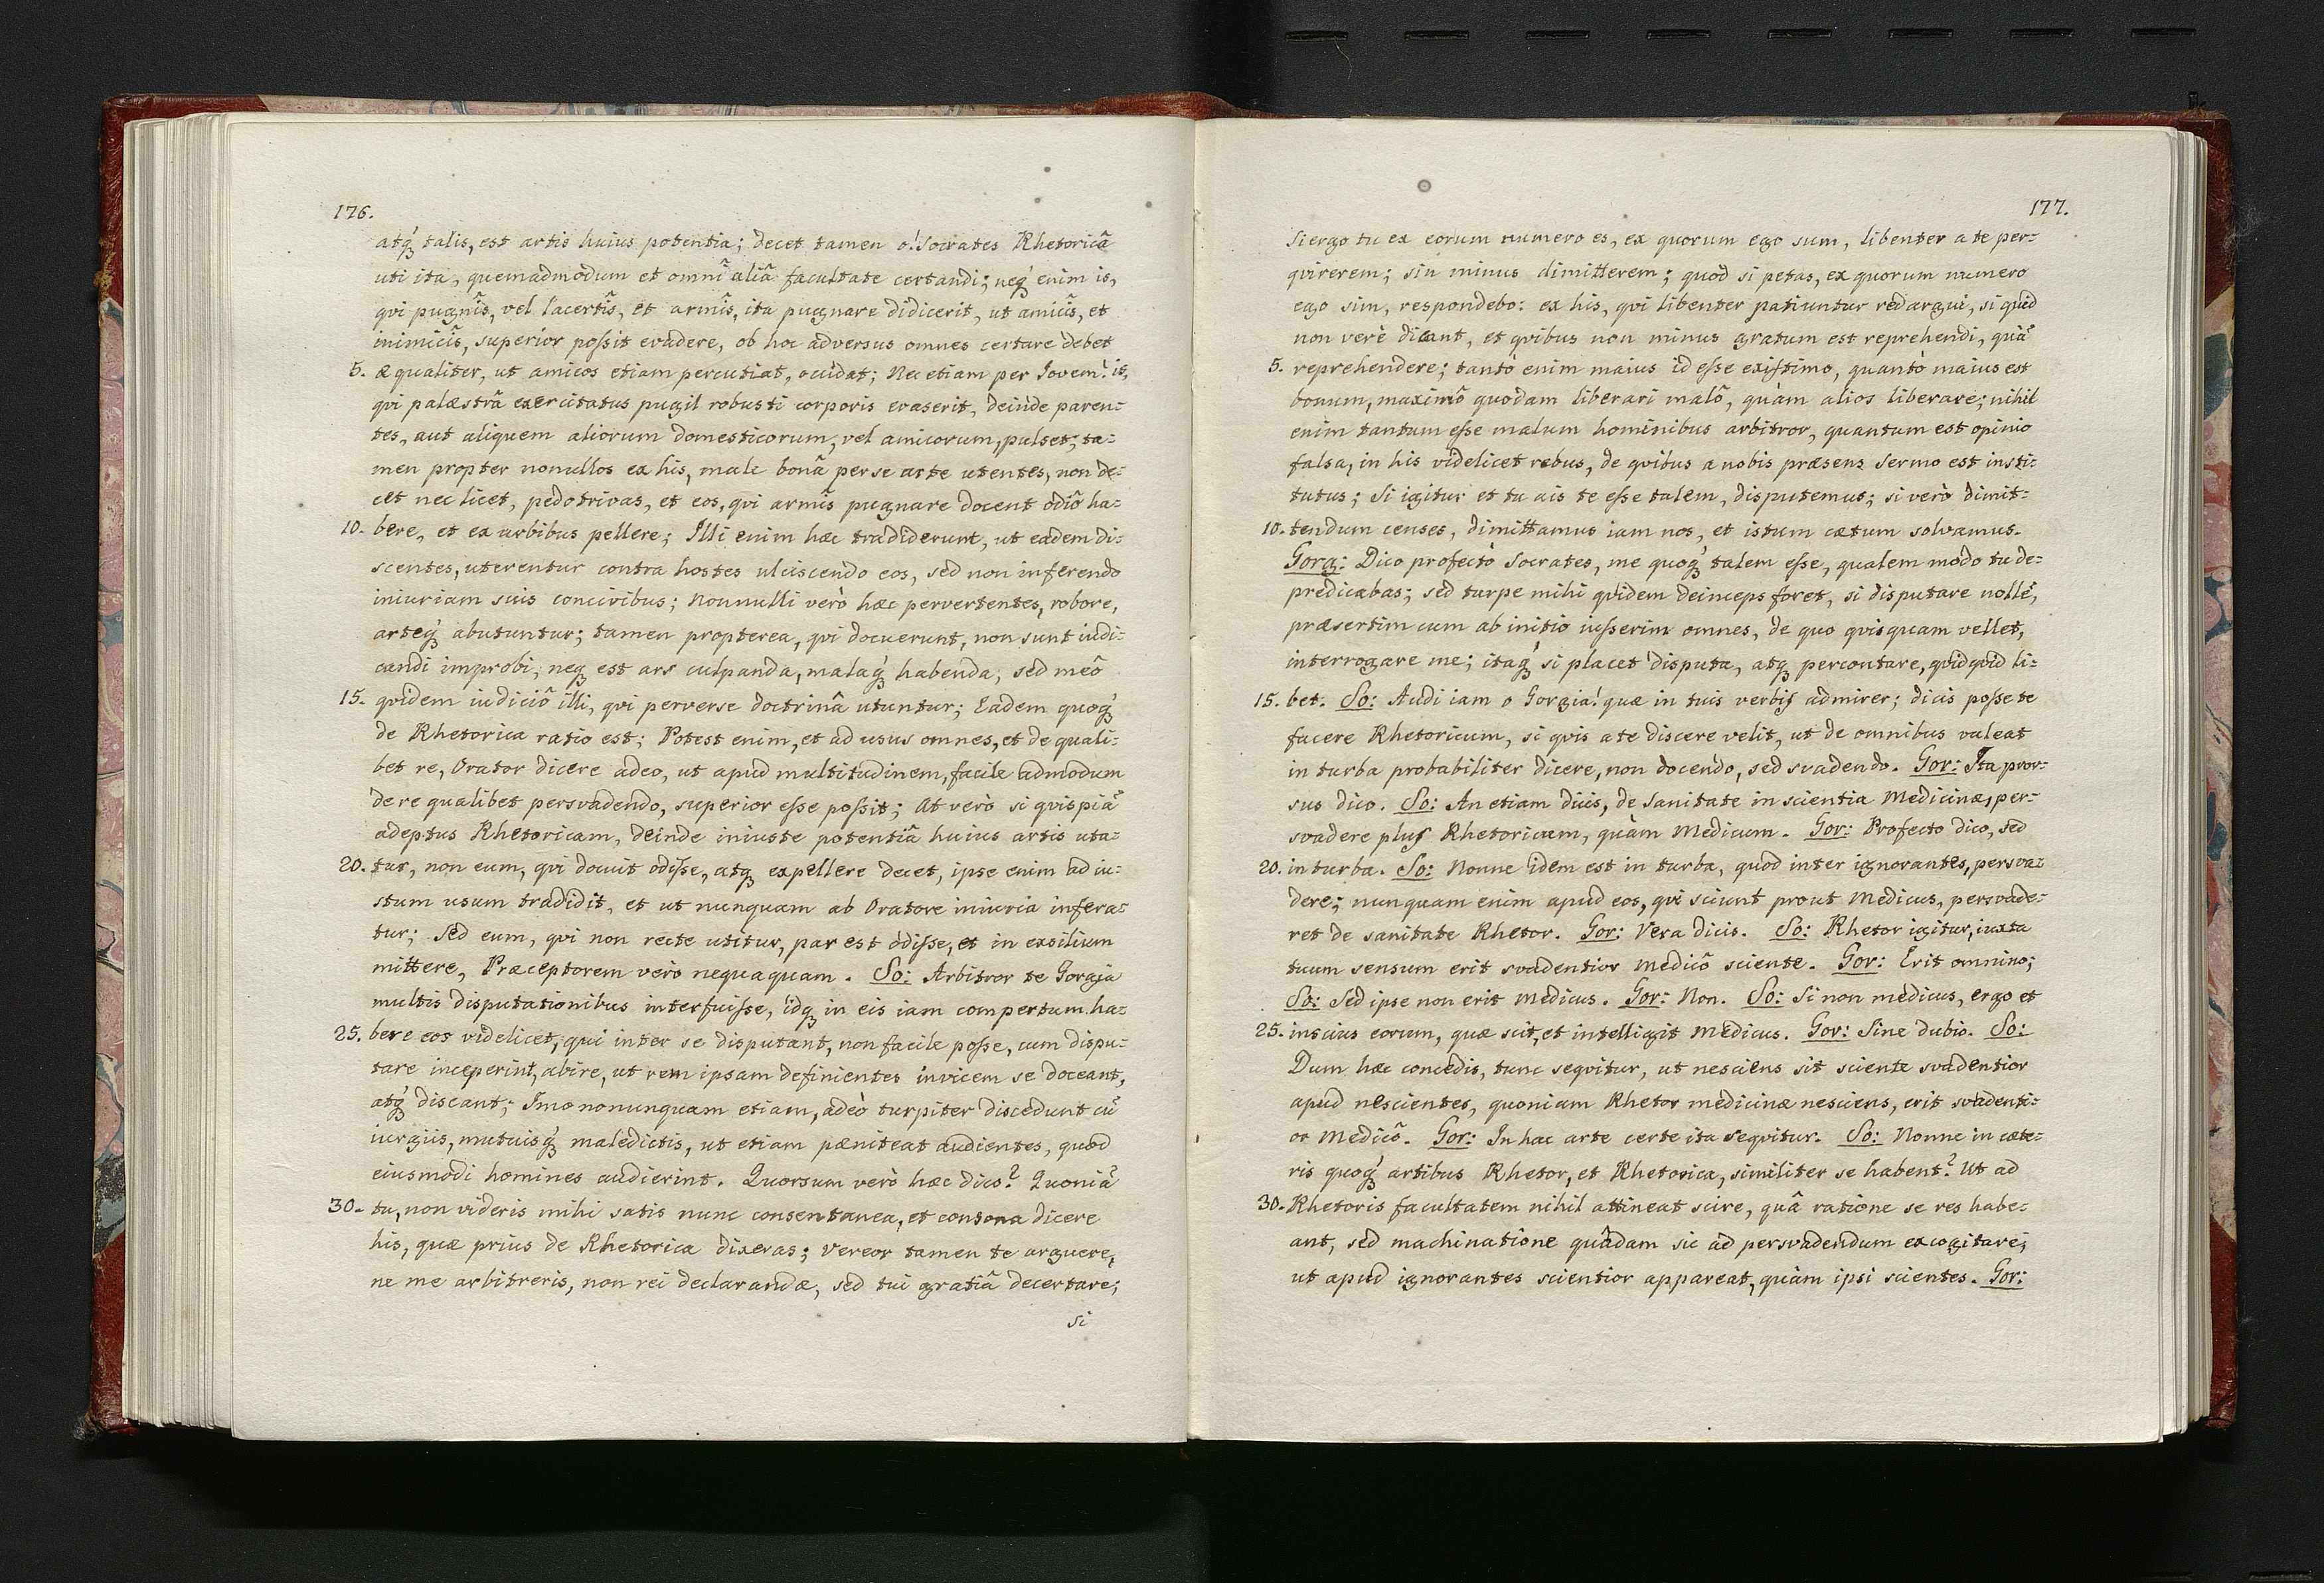 176.
atq́ talis, est artis huius potentia; decet tamen o! Socrates Rhetoricâ
uti ita, quemadmodum et omni aliâ facultate certandi; neq́ enim is,
qvi pugnis, vel lacertis, et armis, ita pugnare didicerit, ut amicis, et
inimicis, superior possit evadere, ob hoc adversus omnes certare debet
5. æqualiter, ut amicos etiam percutiat, occidat; Nec etiam per Jovem! is,
qvi palæstrâ exercitatus pugil robusti corporis evaserit, deinde paren:
tes, aut aliquem aliorum domesticorum, vel amicorum, pulset; ta:
men propter nonullos ex his, male bonâ per se arte utentes, non de:
cet nec licet, pedotrivas, et eos, qvi armis pugnare docent odiô ha:
10. bere, et ex urbibus pellere; Illi enim hæc tradiderunt, ut eadem di:
scentes, uterentur contra hostes ulciscendo eos, sed non inferendo
iniuriam suis concivibus; Nonnulli verò hæc pervertentes, robore,
arteq́ abutuntur; tamen propterea, qvi docuerunt, non sunt iudi:
candi improbi, neq est ars culpanda, malaq́ habenda, sed meô
15. qvidem iudiciô illi, qvi perverse doctrinâ utuntur; Eadem quoq́
de Rhetorica ratio est; Potest enim, et ad usus omnes, et de quali:
bet re, Orator dicere adeo, ut apud multitudinem, facile admodum
de re qualibet persvadendo, superior esse possit; At verò si qvispiã
adeptus Rhetoricam, deinde iniuste potentiâ huius artis uta:
20. tur, non eum, qvi docuit odisse, atq expellere decet, ipse enim ad iu:
stum usum tradidit, et ut nunquam ab Oratore iniuria infera:
tur; Sed eum, qvi non recte utitur, par est odisse, et in exsilium
mittere, Præceptorem verò nequaquam. So: Arbitror te Gorgia
multis disputationibus interfuisse, idq in eis iam compertum ha:
25. bere eos videlicet, qui inter se disputant, non facile posse, cum dispu:
tare inceperint, abire, ut rem ipsam definientes invicem se doceant,
atq́ discant; Imo nonunquam etiam, adeò turpiter discedunt cũ
iurgiis, mutuisq́ maledictis, ut etiam pæniteat audientes, quod
eiusmodi homines audierint. Quorsum verò hæc dico? Quoniã
30. tu, non videris mihi satis nunc consentanea, et consona dicere
his, quæ prius de Rhetorica dixeras; Vereor tamen te arguere,
ne me arbitreris, non rei declarandæ, sed tui gratiâ decertare;
si
177.
Si ergo tu ex eorum numero es, ex quorum ego sum, libenter a te per:
qvirerem; sin minus dimitterem; quod si petas, ex quorum numero
ego sim, respondebo: ex his, qvi libenter patiuntur redargui, si quid
non verè dicant, et qvibus non minus gratum est reprehendi, quã
5. reprehendere; tantò enim maius id esse existimo, quantò maius est
bonum, maximô quodam liberari malô, quàm alios liberare; nihil
enim tantum esse malum hominibus arbitror, quantum est opinio
falsa, in his videlicet rebus, de qvibus a nobis præsens sermo est insti:
tutus; Si igitur et tu ais te esse talem, disputemus; si verò dimit:
10. tendum censes, dimittamus iam nos, et istum cætum solvamus.
Gorg: Dico profectò Socrates, me quoq́ talem esse, qualem modo tu de:
predicabas; sed turpe mihi qvidem deinceps foret, si disputare nollẽ,
præsertim cum ab initio iusserim omnes, de quo qvisquam vellet,
interrogare me; itaq́ si placet disputa, atq percontare, qvidqvid li:
15. bet. So: Audi iam o Gorgia! quæ in tuis verbis admirer; dicis posse te
facere Rhetoricum, si qvis a te discere velit, ut de omnibus valeat
in turba probabiliter dicere, non docendo, sed svadendo. Gor: Ita pror:
sus dico. So: An etiam dicis, de Sanitate in scientia Medicinæ, per:
svadere plus Rhetoricum, quàm Medicum. Gor: Profecto dico, sed
20. in turba. So: Nonne idem est in turba, quod inter ignorantes, persva:
dere; nunquam enim apud eos, qvi sciunt prout Medicus, persvade:
ret de sanitate Rhetor. Gor: Vera dicis. So: Rhetor igitur, iuxta
tuum sensum erit svadentior Medicô sciente. Gor: Erit omnino;
So: Sed ipse non erit Medicus. Gor: Non. So: Si non medicus, ergo et
25. inscius eorum, quæ scit, et intelligit Medicus. Gor: Sine dubio. So:
Dum hæc concedis, tunc seqvitur, ut nesciens sit sciente svadentior
apud nescientes, quoniam Rhetor medicinæ nesciens, erit svadenti:
or Medicô. Gor: In hac arte certe ita seqvitur. So: Nonne in cæte:
ris quoq́ artibus Rhetor, et Rhetorica, similiter se habent? Ut ad
30. Rhetoris facultatem nihil attineat scire, quâ ratione se res habe:
ant, sed machinatione quâdam sic ad persvadendum excogitare,
ut apud ignorantes scientior appareat, quàm ipsi scientes. Gor: